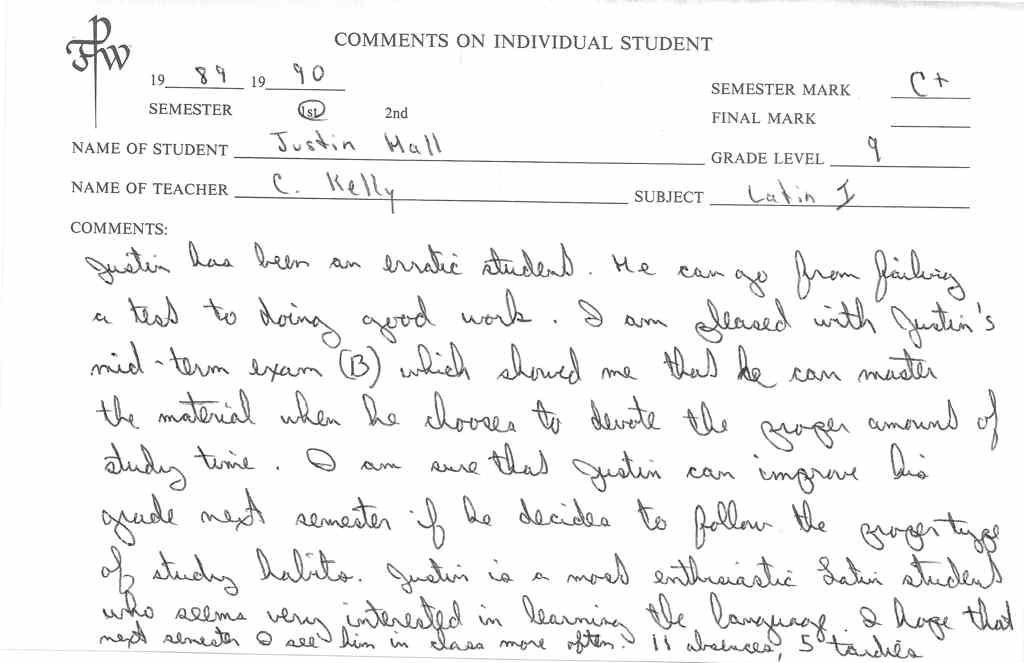 FPW
COMMENTS ON INDIVIDUAL STUDENT
19 89 19 90
SEMESTER MARK C+
SEMESTER 1st 2nd
FINAL MARK
NAME OF STUDENT Justin Hall
GRADE LEVEL 9
NAME OF TEACHER C. Kelly
SUBJECT Latin I
COMMENTS:
Justin has been an erratic student. He can go from failing
a test to doing good work. I am pleased with Justin's
mid-term exam (B) which showed me that he can master
the material when he chooses to devote the proper amount of
study time. I am sure that Justin can improve his
grade next semester if he decides to follow the proper type
of study habits. Justin is a most enthusiastic Latin student
who seems very interested in learning the language. I hope that
next semester I see him in class more often. 11 absences, 5 tardies